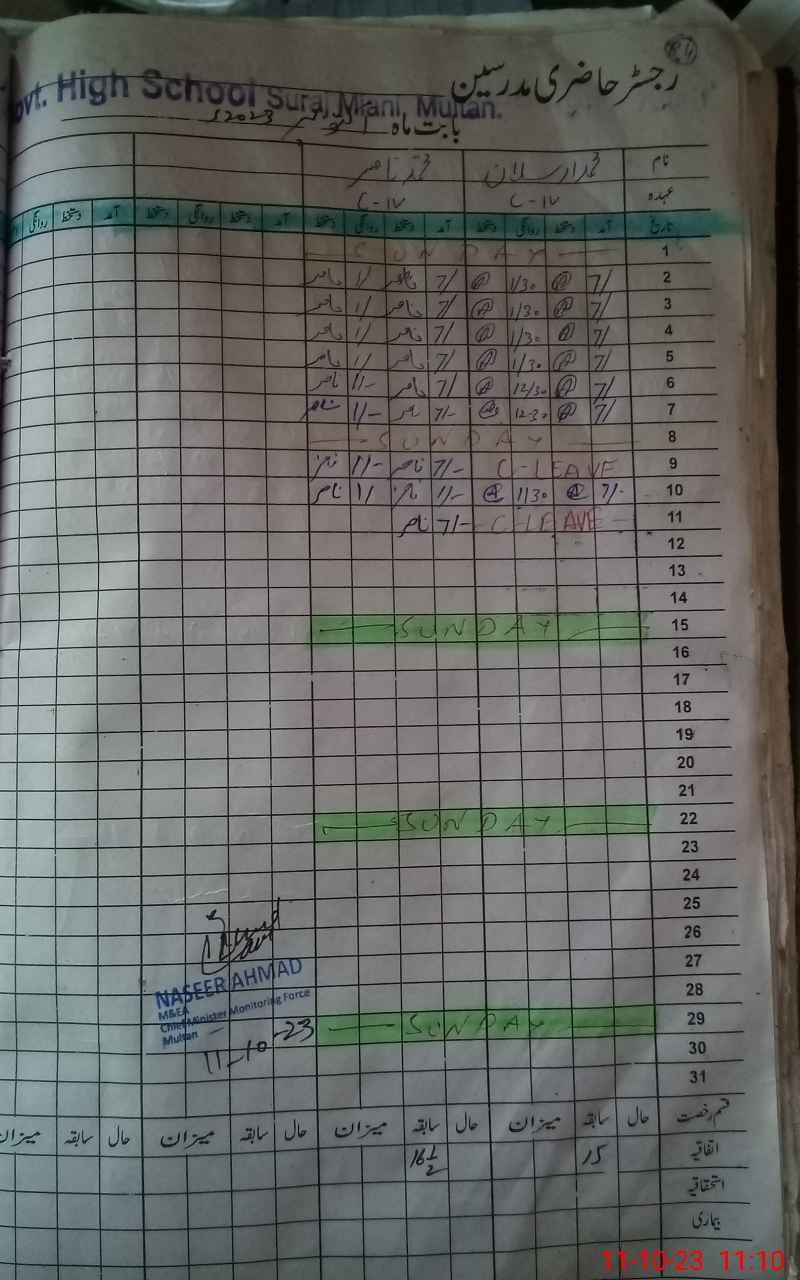 رجسٹر حاضری مدرسین
Govt. High School Suraj Miani, Multan.
بابت ماہ اکتوبر 2023ء
نام محمد ارسلان محمد ناصر
عہدہ C-IV C-IV
تاریخ آمد دستخط روانگی دستخط آمد دستخط روانگی دستخط آمد دستخط روانگی دستخط آمد دستخط روانگی
1 SUNDAY
2 7/ 1/30 7/ ناصر 1/ ناصر
3 7/ 1/30 7/ ناصر 1/ ناصر
4 7/ 1/30 7/ ناصر 1/ ناصر
5 7/ 1/30 7/ ناصر 1/ ناصر
6 7/ 12/30 7/ ناصر 1/- ناصر
7 7/ 12-30 7/- ناصر 1/- ناصر
8 SUNDAY
9 C-LEAVE 7/- ناصر 1/- ناصر
10 7/- 1/30 ناصر 1/ ناصر
11 C-LEAVE 7/- ناصر
12
13
14
15 SUNDAY
16
17
18
19
20
21
22 SUNDAY
23
24
25
26
27
28
29 SUNDAY
30
31
NASEER AHMAD
M&EA
Chief Minister Monitoring Force
Multan
11-10-23
قسم رخصت حال سابقہ میزان حال سابقہ میزان حال سابقہ میزان حال سابقہ میزان
اتفاقیہ 15 16 1/2
استحقاقیہ
بیماری
11-10-23 11:10